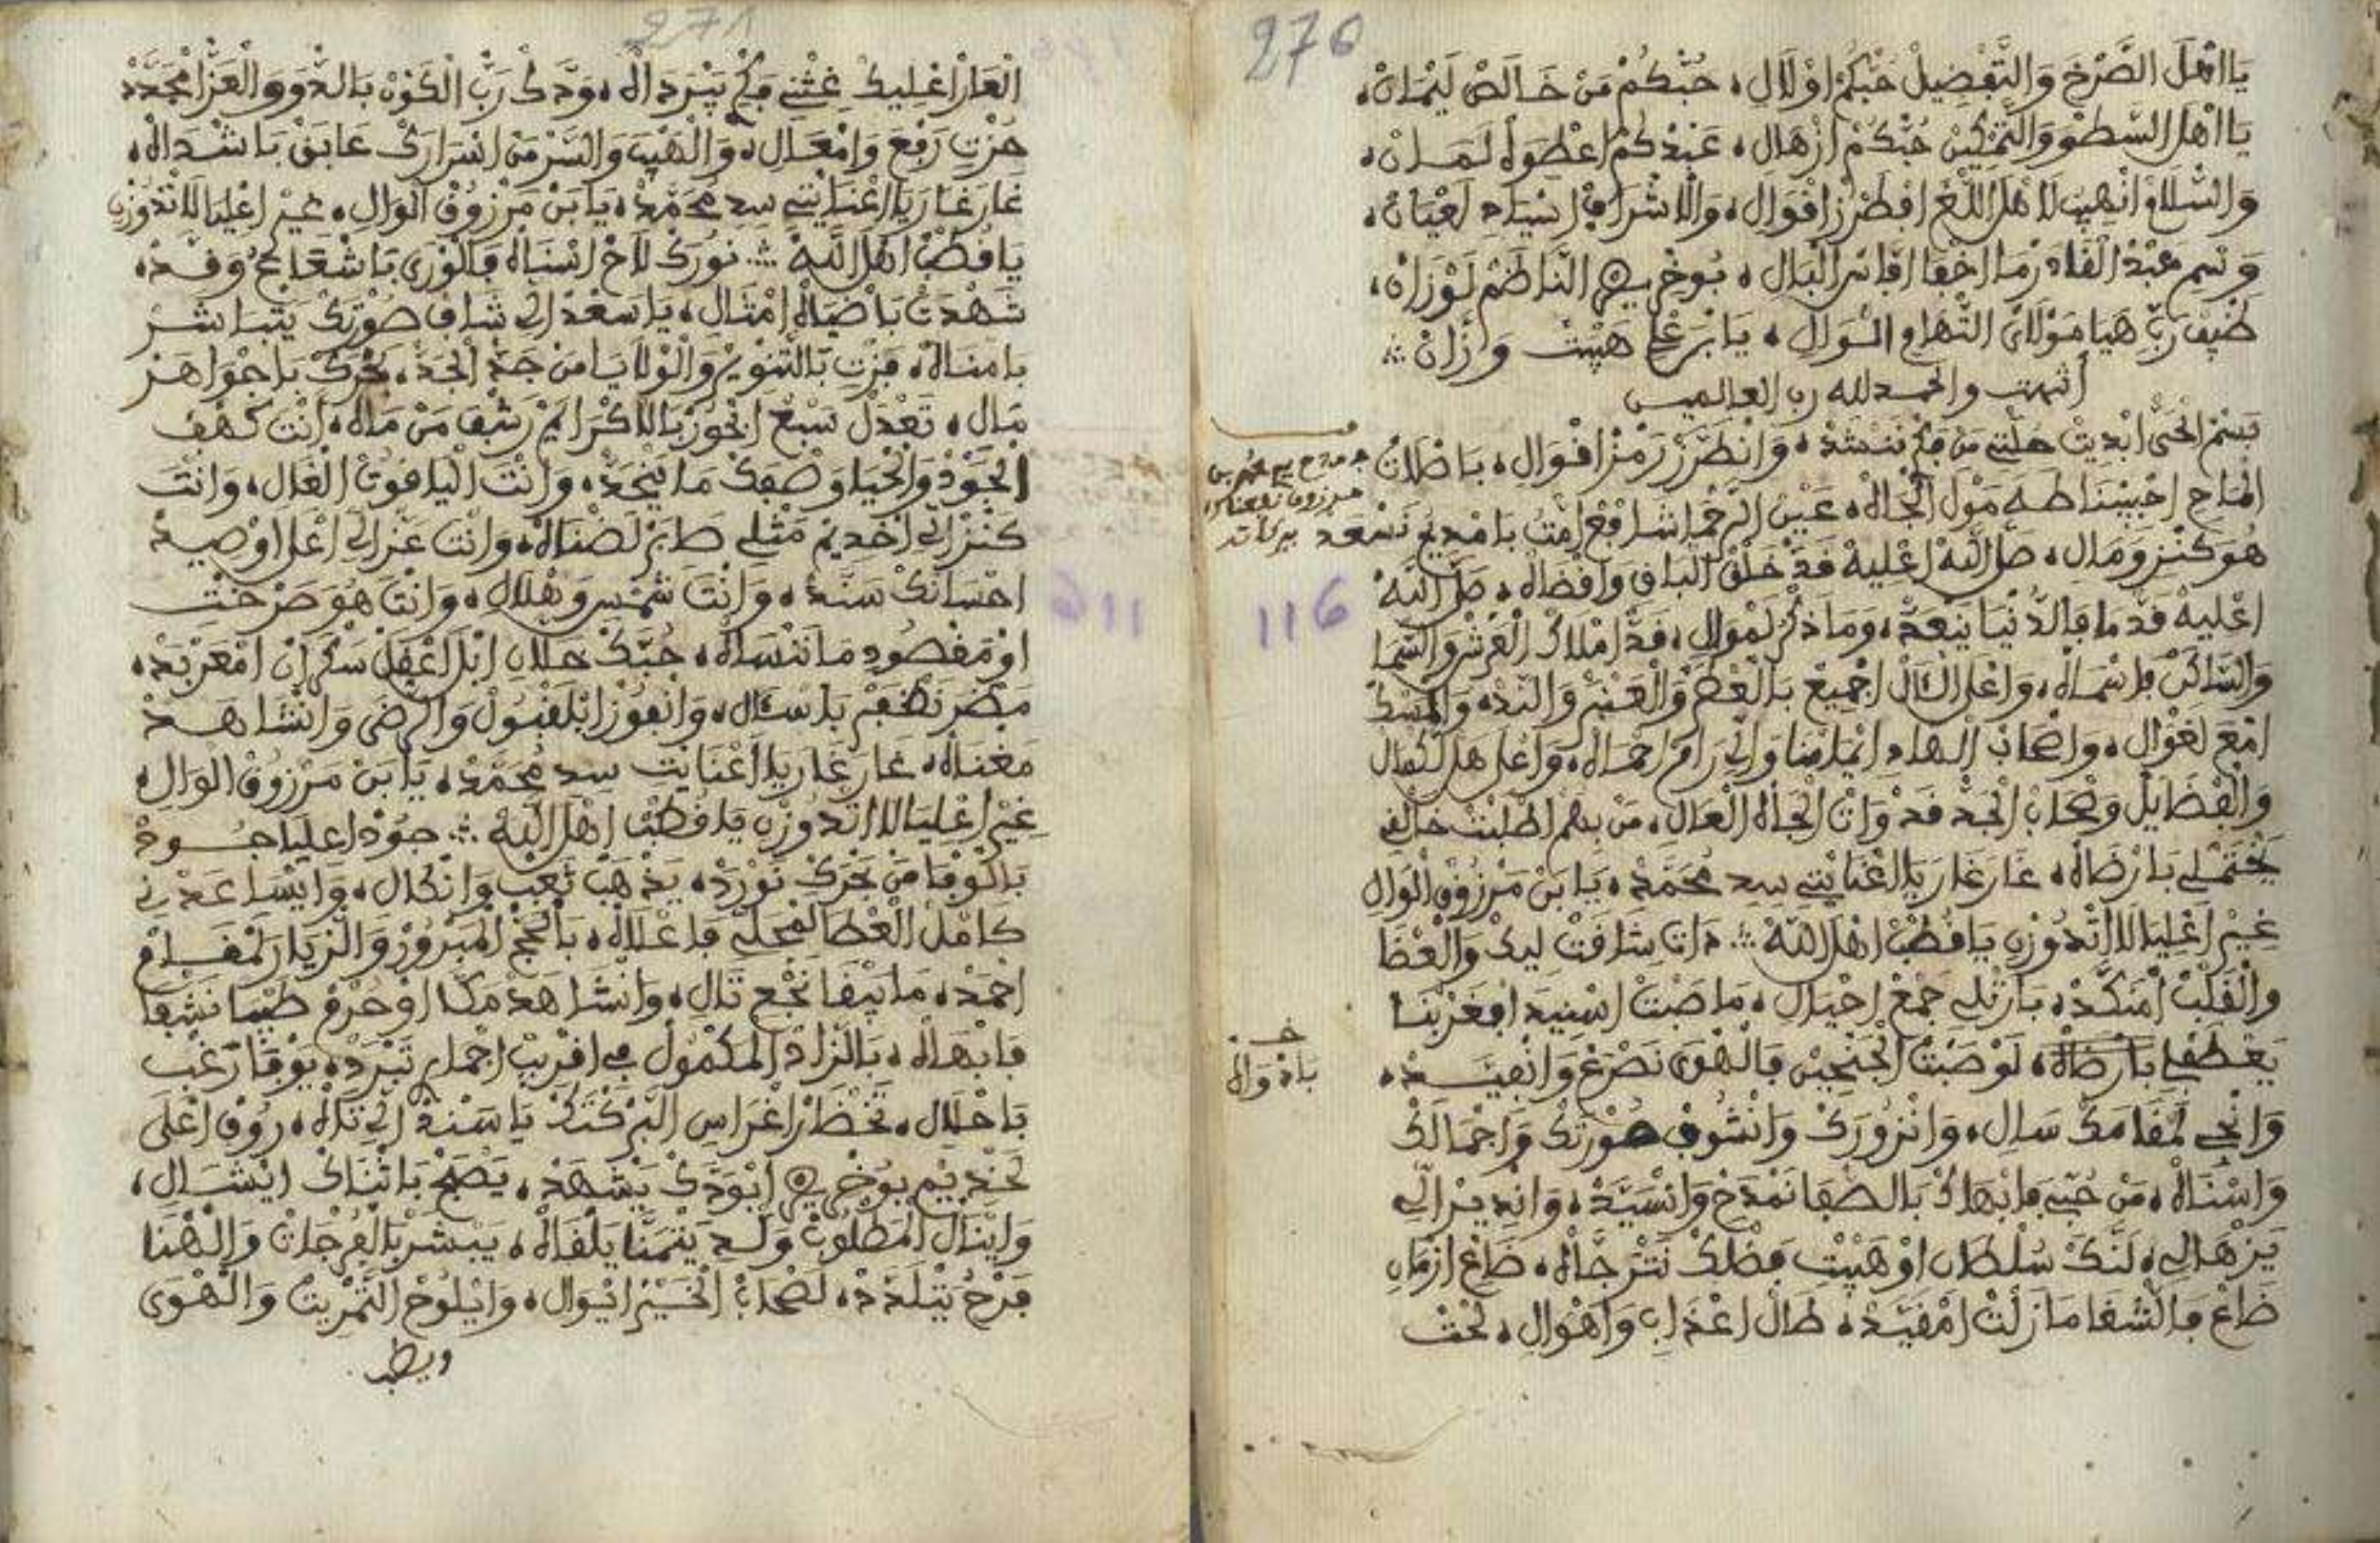 270
يَا اهْلَ الصَّرْخَ وَالتَّفْضِيلْ حُبْكُمْ اوْلَالِ، حُبّكُمْ مَنْ خَالَصْ لَيْمَانْ،
يَا اهْلَ السَّطْوَ وَالتَّمْكِينْ حُبّكُمْ ازْهَالِ، عَبْدكُمْ اعْطِوَهْ لَمَانْ،
وَالسَّلَامْ انْهِيبْ لَاهْلَ اللّغَ ابْطَرْزْ اقْوَالِ، وَالَاشْرَافْ اسْيَادِ لَعْيَانْ،
وَسْمِ عَبْدْ القَادَرْ مَا اخْفَا افَاسْ الْبَالِ، بُوخْرِيصْ النَّاظَمْ لَوْزَانْ،
ضَيْفْ رَبِّ هِيَا مَوْلَايْ التّهَامِ الْوَالِ، يَا بَنْ عْلِ هَيْبْتْ وَزَّانْ
انتهت والحمد لله رب العالمين
بَسْمْ الْحَيّ ابْدِيتْ حُلْتِي مَنْ فِكْرِ نَنْشَدْ، وَانْطَرَّزْ رَمْزْ اقْوَالِ، بَاصْلَاتْ
الْمَاحِ احْبِيبْنَا طَهَ مَوْلْ الْجَاهْ، عَيْنْ الرَّحْمَا شَافِعْ امْتُ بَامْدِيحُ نَسْعَد
هُوَ كَنْزِ وَمَالِ، صَلَّى اللَّهْ اعْلِيهْ قَدْ خَلْقْ الْبَاقِ وَافْضَالْ، صَلَّى اللَّهْ
اعْلِيهْ قَدّ مَا فَالدُّنْيَا يَنْعَدّ، وَمَا ذَكْرْ لَمْوَالِ، قَدّ امْلَاكْ الْعَرْشْ وَالسّمَا
وَالسَّاكَنْ فَاسْمَاهْ، وَاعْلَى الْآلْ اجْمِيعْ بَالْعْطَرْ وَالْعَنْبَرْ وَالنَّدّ، وَالْمَسْكْ
امْعَ لَغْوَالِ، وَاصْحَابْ الْهَادِ ايْمَامْنَا وَالِّ رَامْ احْمَاهْ، وَاعْلَى هَلْ لَكْمَالْ
وَالْفْضَايَلْ وَصْحَابْ الْجَدّ قَدْوَاتْ الْجَاهْ الْعَالِ، مَنْ بِهُمْ اطْلَبْتْ خَالْقِي
يَخْتَمْلِي بَارْضَاهْ، غَارَ غَارَ يَا اعْنَايْتِي سِيدِ مُحَمَّدْ، يَا بَنْ مَرْزُوقْ الْوَالِ
غِيرْ اعْلِيَا لَا اتْدُوزْنِ يَا قُطْبْ اهْلَ اللَّهْ، ذَاتِ شَاقَتْ لِيكْ وَالْعْضَا
وَالْقَلْبْ امْنَكَّدْ، بَارْتْلِي جَمْعْ احْيَالِ، مَا صَبْتْ اسْنِيدَ افْغَرْبْنَا
يَعْطَفْلِي بَارْضَاهْ، لَوْ صَبْتْ الْجَنْحِينْ فَالْهْوَى نَصْرَعْ وَانْفِيَّدْ،
وَانْجِي لَمْقَامَكْ سَالِ، وَانْزُورَكْ وَانْشُوفْ صُورْتَكْ وَاجْمَالَكْ
وَاسْنَاهْ، مَنْ حُبِّي فَابْهَاكْ بَالصّفَا نَمْدَحْ وَانْسَيَّدْ، وَانْدِيرْ الِّي
يَزْهَالِي، لَنَّكْ سُلْطَانِ اوْ هَيْبْتِ فَضْلَكْ نَتْرَجَّاهْ، ضَاعْ ازْمَانِ
ضَاعْ فَالشّقَا مَا زَلْتْ امْقَيَّدْ، طَالْ اعْذَابِ وَاهْوَالِ، لَحْتْ
مدح سيد محمد بن
مرزوق نفعنا الله
ببركاته
116
خـ
بادواه
271
الْعَارْ اعْلِيكْ غِثْنِي فِكْرِ يَبْرَدْ الْ، وَدَّكْ رَبّ الْكَوْنْ بَالدّوَ وَالْعَزّ امْجَدَّدْ
حُزْتِ رَفْعَ وَامْعَالِ، وَالْهَيْبَ وَالسَّرْ مَنْ اسْرَارَكْ عَابَقْ بَاشْدَاهْ،
غَارَ غَارَ يَا اعْنَايْتِي سِيدِ مُحَمَّدْ، يَا بَنْ مَرْزُوقْ الْوَالِ، غِيرْ اعْلِيَا لَا اتْدُوزْنِ
يَا قُطْبْ اهْلَ اللَّهْ، نُورَكْ لَاحْ اسْنَاهْ فَالْوْرَى بَاشْعَاعُ وَقَّدْ،
شَهْدَتْ بَاضْيَاهْ امْثَالِ، يَا سَعْدْ الِّ شَافْ صُورْتَكْ يَتْبَاشَرْ
بَامْنَاهْ، فَزْتِ بَالتَّنْوِيرْ وَالْوْلَايَا مَنْ جَدّ الْجَدّ، بَحْرَكْ بَاجْوَاهَرْ
مَالِ، تَعْدَلْ سَبْعْ ابْحُورْ بَالَاكْرَامْ رَشْفَ مَنْ مَاهْ، انْتَ كَهْفْ
الْجُودْ وَالْحْيَا وَصْفَكْ مَا يَنْحَدّ، وَانْتَ الْيَاقُوتْ الْغَالِ، وَانْتَ
كَنْزْ الِّ اخْدِيمْ مَثْلِي طَايَرْ لَضْنَاهْ، وَانْتَ عَزّ الِّ اعْلَى اوْصِيدْ
احْسَانَكْ سَنَّدْ، وَانْتَ شَمْسِ وَهْلَالِ، وَانْتَ هُوَ صَرْخْتِ
اوْ مَقْصُودِ مَا نَنْسَاهْ، حُبَّكْ خَلَّانِ ابْلَا عْقَلْ سَكْرَانْ امْعَرْبَدْ،
مَضَرْ نَظْفَرْ بَاسْآلِ، وَانْفُوزْ ابْلَقْبُولْ وَالرّضَى وَانْشَاهَدْ
مَغْنَاهْ، غَارَ غَارَ يَا اعْنَايْتِي سِيدِ مُحَمَّدْ، يَا بَنْ مَرْزُوقْ الْوَالِ،
غِيرْ اعْلِيَا لَا اتْدُوزْنِ يَا قُطْبْ اهْلَ اللَّهْ، جُودْ اعْلِيَا جُودْ
بَالْوْفَا مَنْ بَحْرَكْ نَوْرَدْ، يَذْهَبْ تَعْبِ وَانْكَالِ، وَايْسَاعَدْنِي
كَامَلْ الْعْطَا لَمْحَلِّي فَاعْلَاهْ، بَالْحَجّ الْمَبْرُورْ وَالزّيَارَ لَمْقَامْ
احْمَدْ، مَا يَبْقَا نَجْعِ تَالِ، وَانْشَاهَدْ مَكَّا اوْ حُرْمْ طَيْبَا نَشْفَا
فَابْهَاهْ، بَالزَّادْ الْمَكْمُولْ فِي اقْرِيبْ اجْمَارِ تَبْرَدْ، يَوْفَا رَغْبِ
بَاحْلَالِ، نَحْضَرْ اغْرَاسِ الْبَرْكْتَكْ يَا سَنْدْ الِّ تَاهْ، رُوفْ اعْلَى
لَخْدِيمْ بُوخْرِيصْ ابْوَدَّكْ يَشْهَدْ، يَصْبَحْ بَاثْنَاكْ ايْسَالِ،
وَايْنَالْ الْمَطْلُوبْ وَلِّ يَتْمَنَّا يَلْقَاهْ، يَبْشَرْ بَالْفُرْجَاتْ وَالْهْنَا
فَرْحُ يَتْلَذَّذْ، لَصْحَابْ الْخَيْرْ ايْوَالِ، وَايْلُوحْ التَّمْرِيتْ وَالْهْوَى
ويطيب